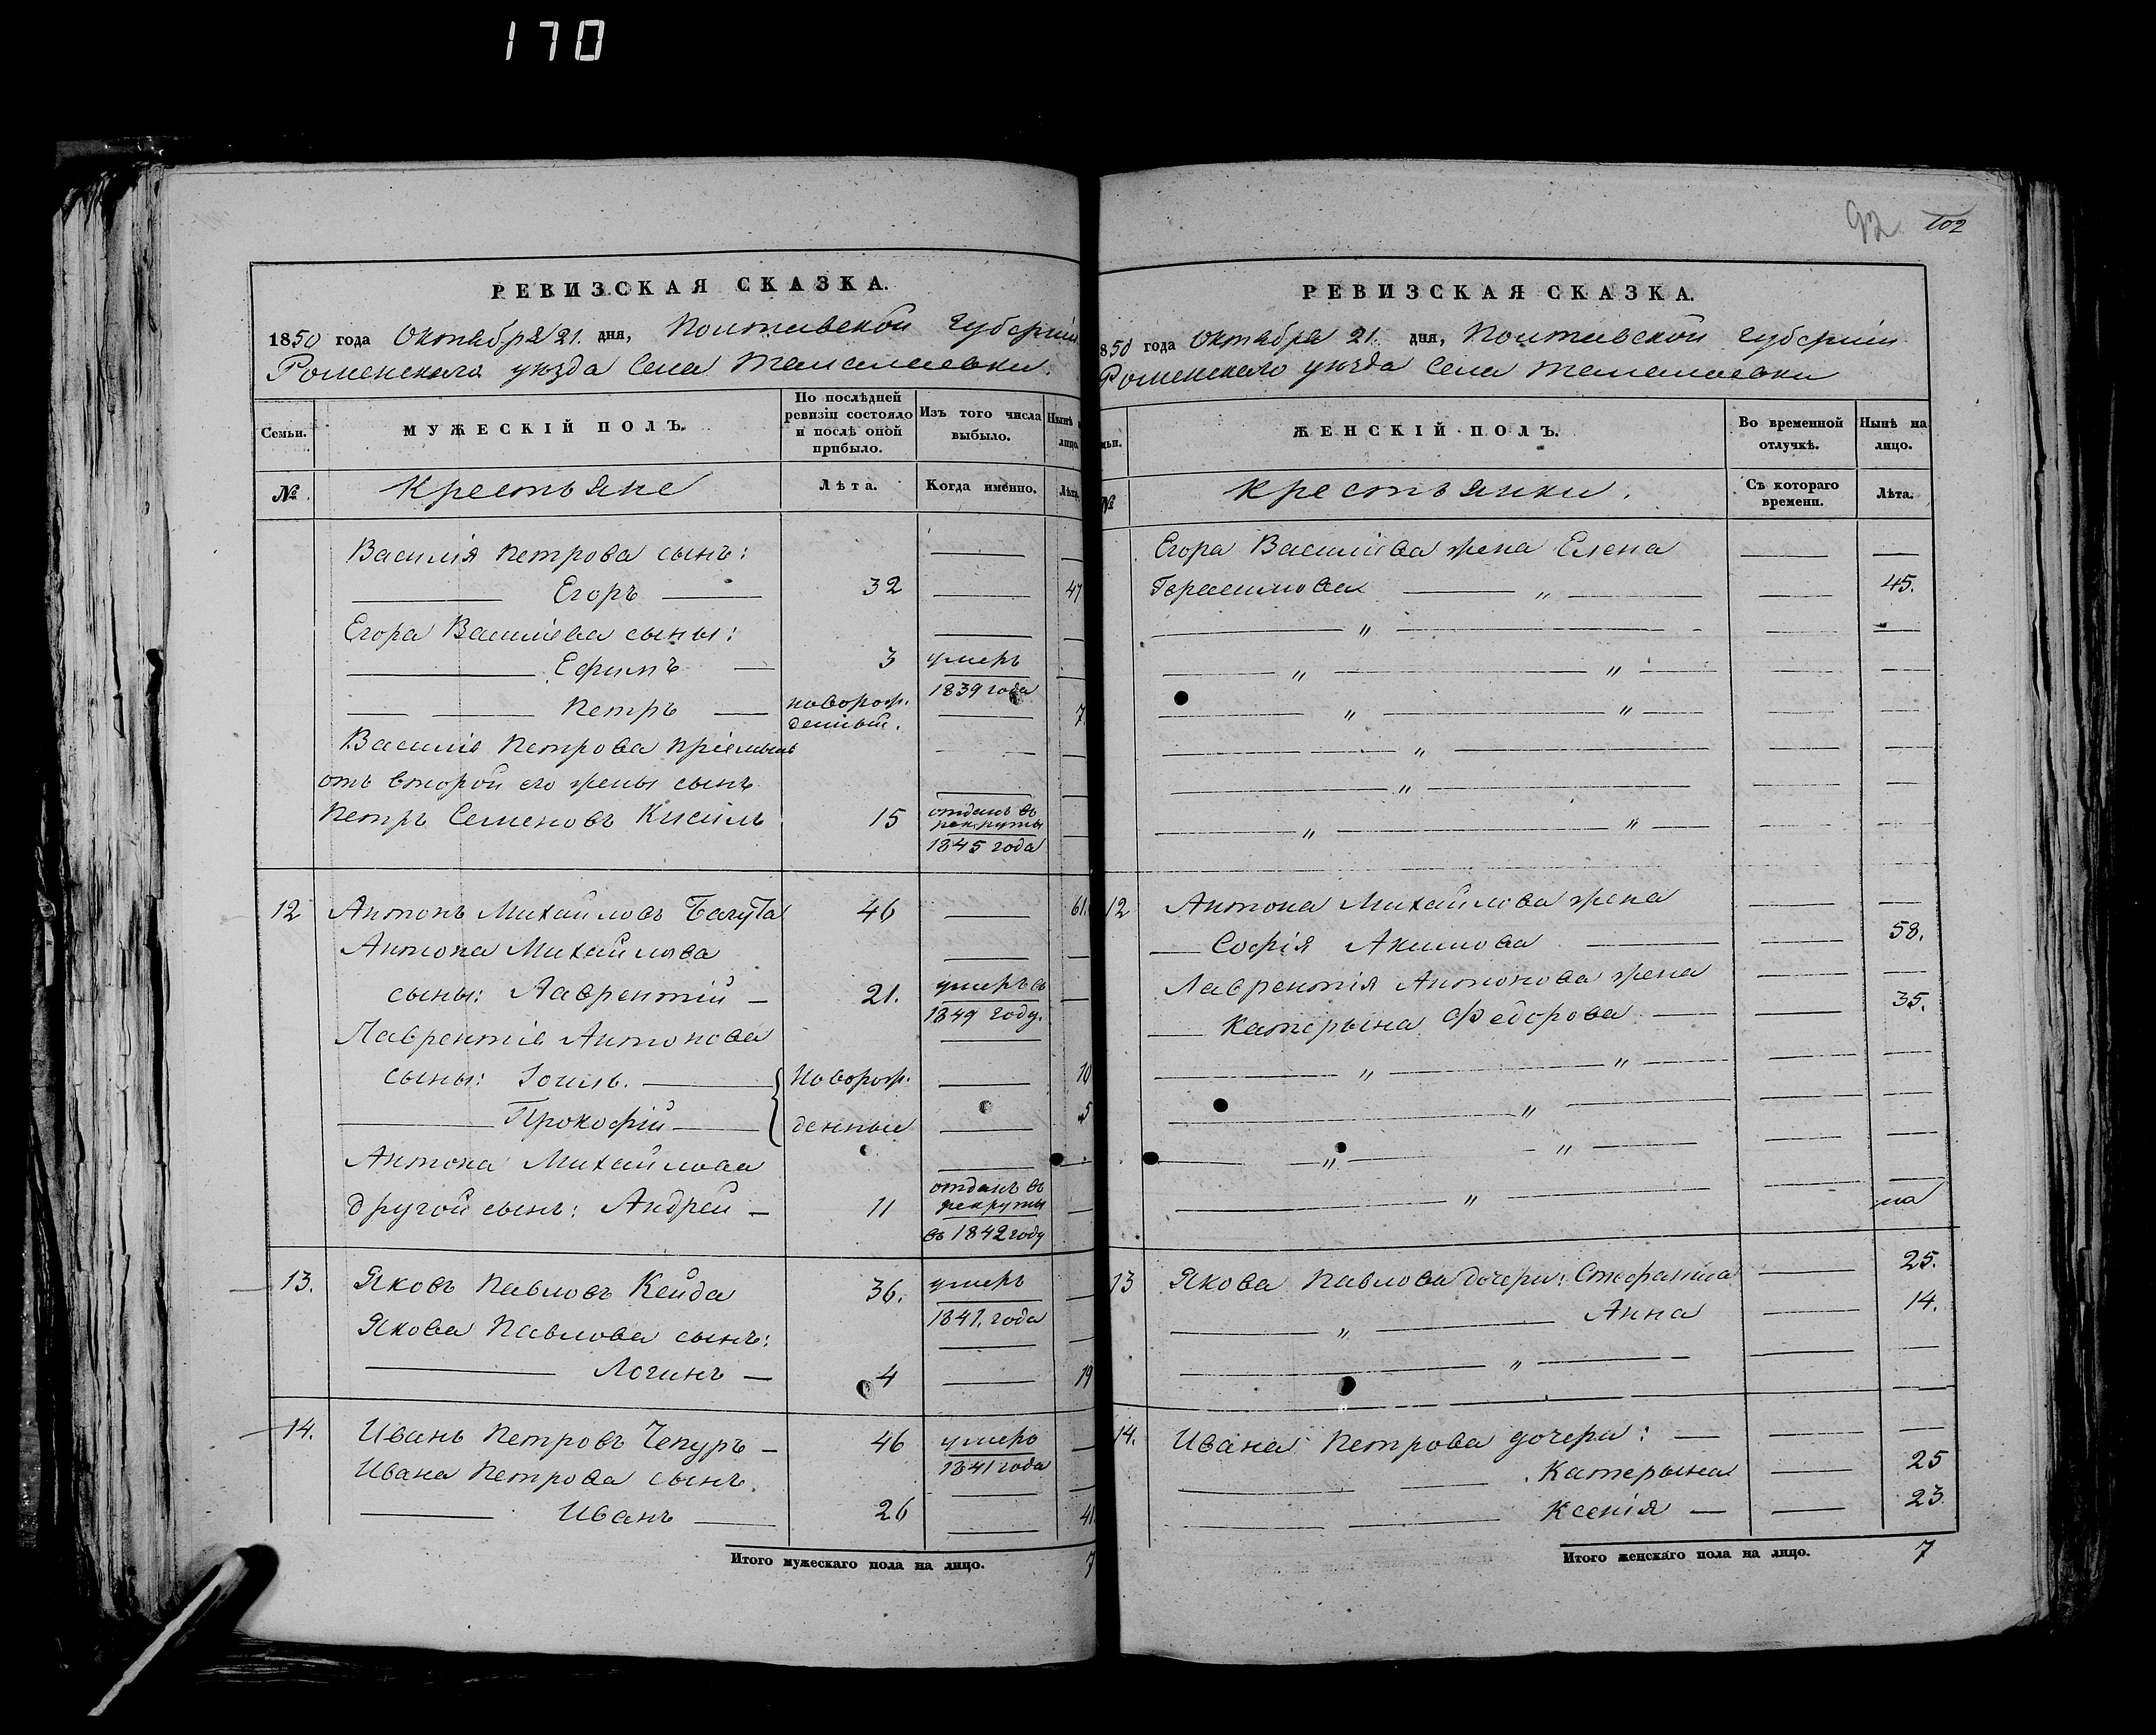 170
92 102
РЕВИЗСКАЯ СКАЗКА.
1850 года Октября 21. дня, Полтавской Губерніи
Роменскаго уѣзда Села Талалаевки.
Семьи.
МУЖЕСКІЙ ПОЛЪ.
По послѣдней ревизіи состояло и послѣ оной прибыло.
Изъ того числа выбыло.
Нынѣ лицо.
№
Крестьяне
Лѣта.
Когда именно.
Лѣта.
Василія Петрова сынъ:
Егоръ 32 47
Егора Василіева сыны:
Ефимъ 3 умеръ 1839 года
Петръ новорож. денный. 7
Василія Петрова пріемышъ
отъ второй его жены сынъ
Петръ Семеновъ Кисиль 15 отданъ въ рекруты 1845 года
12 Антонъ Михайловъ 46 61.
Антона Михайлова
сыны: Лаврентій 21. умеръ въ 1849 году.
Лаврентія Антонова
сыны: новорож. 10
Прокофій денные 5
Антона Михайлова
другой сынъ: Андрей 11 отданъ въ рекруты въ 1842 году
13. Яковъ Павловъ Кейда 36. умеръ 1841. года
Якова Павлова сынъ:
Логинъ 4 19
14. Иванъ Петровъ Чепуръ 46 умеръ 1841 года
Ивана Петрова сынъ
Иванъ 26 41.
Итого мужескаго пола на лицо. 7
РЕВИЗСКАЯ СКАЗКА.
850 года Октября 21. дня, Полтавской Губерніи
Роменскаго уѣзда Села Талалаевки
ЖЕНСКІЙ ПОЛЪ.
Во временной отлучкѣ.
Нынѣ на лицо.
№
Крестьянки.
Съ котораго времени.
Лѣта.
Егора Василіева жена Елена
Герасимова 45.
12 Антона Михайлова жена
Софія Акимова 58.
Лаврентія Антонова жена
Катерына Федорова 35.
13 Якова Павлова дочери: Стефанида 25.
Анна 14.
14. Ивана Петрова дочери:
Катерына 25
Ксенія 23.
Итого женскаго пола на лицо. 7